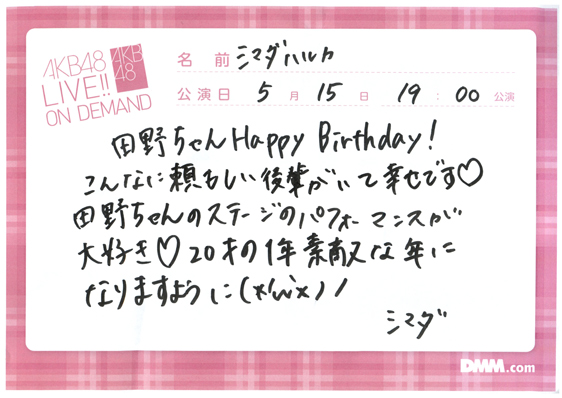 AKB48
LIVE!!
ON DEMAND
AKB
48
名前 シマダハルカ
公演日 5月15日 19:00公演
田野ちゃんHappy Birthday!
こんなに頼もしい後輩がいて幸せです♡
田野ちゃんのステージのパフォーマンスが
大好き♡20才の1年素敵な年に
なりますように
シマダ
DMM.com